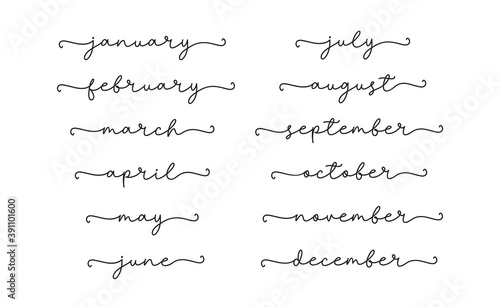 january
february
march
april
may
june
july
august
september
october
november
december
Adobe Stock | #391101600